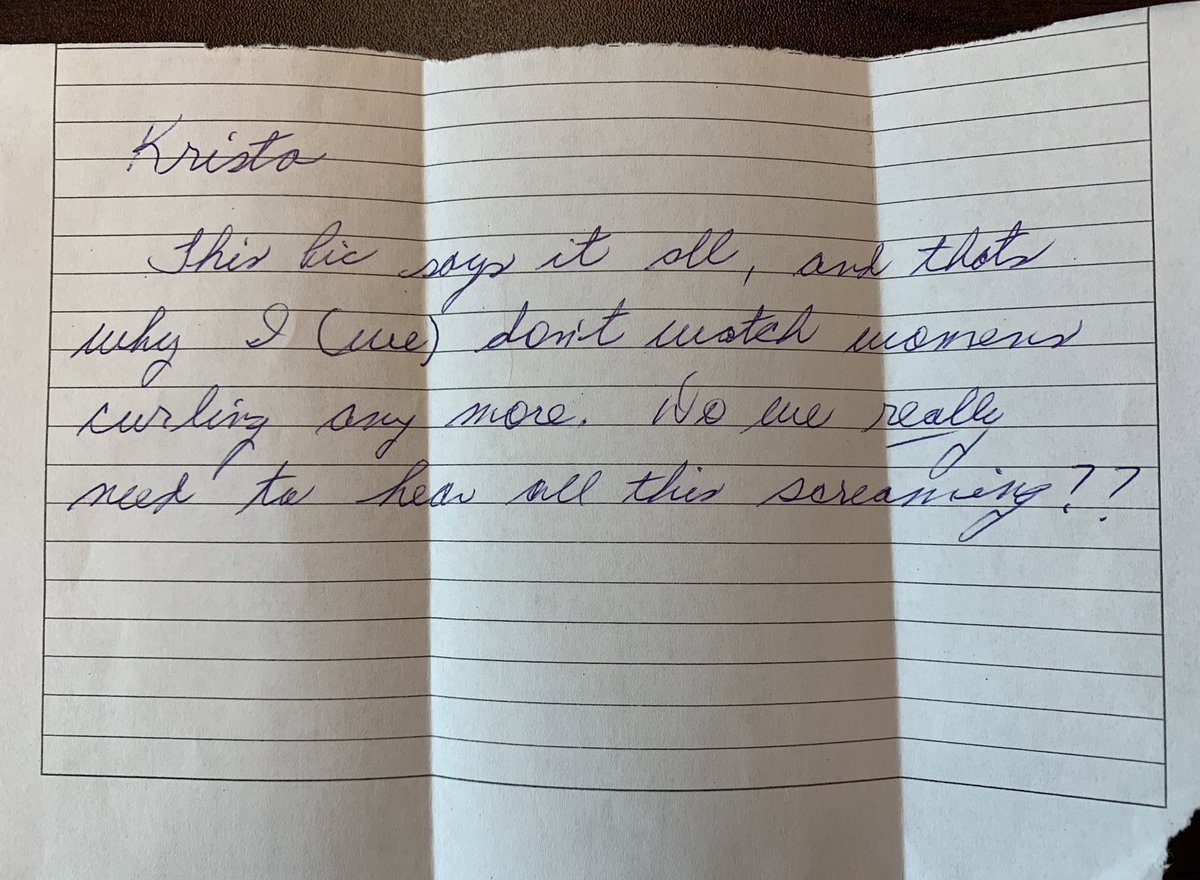 Krista
This pic says it all, and thats
why I (we) don't watch womens
curling any more. Do we really
need to hear all this screaming??